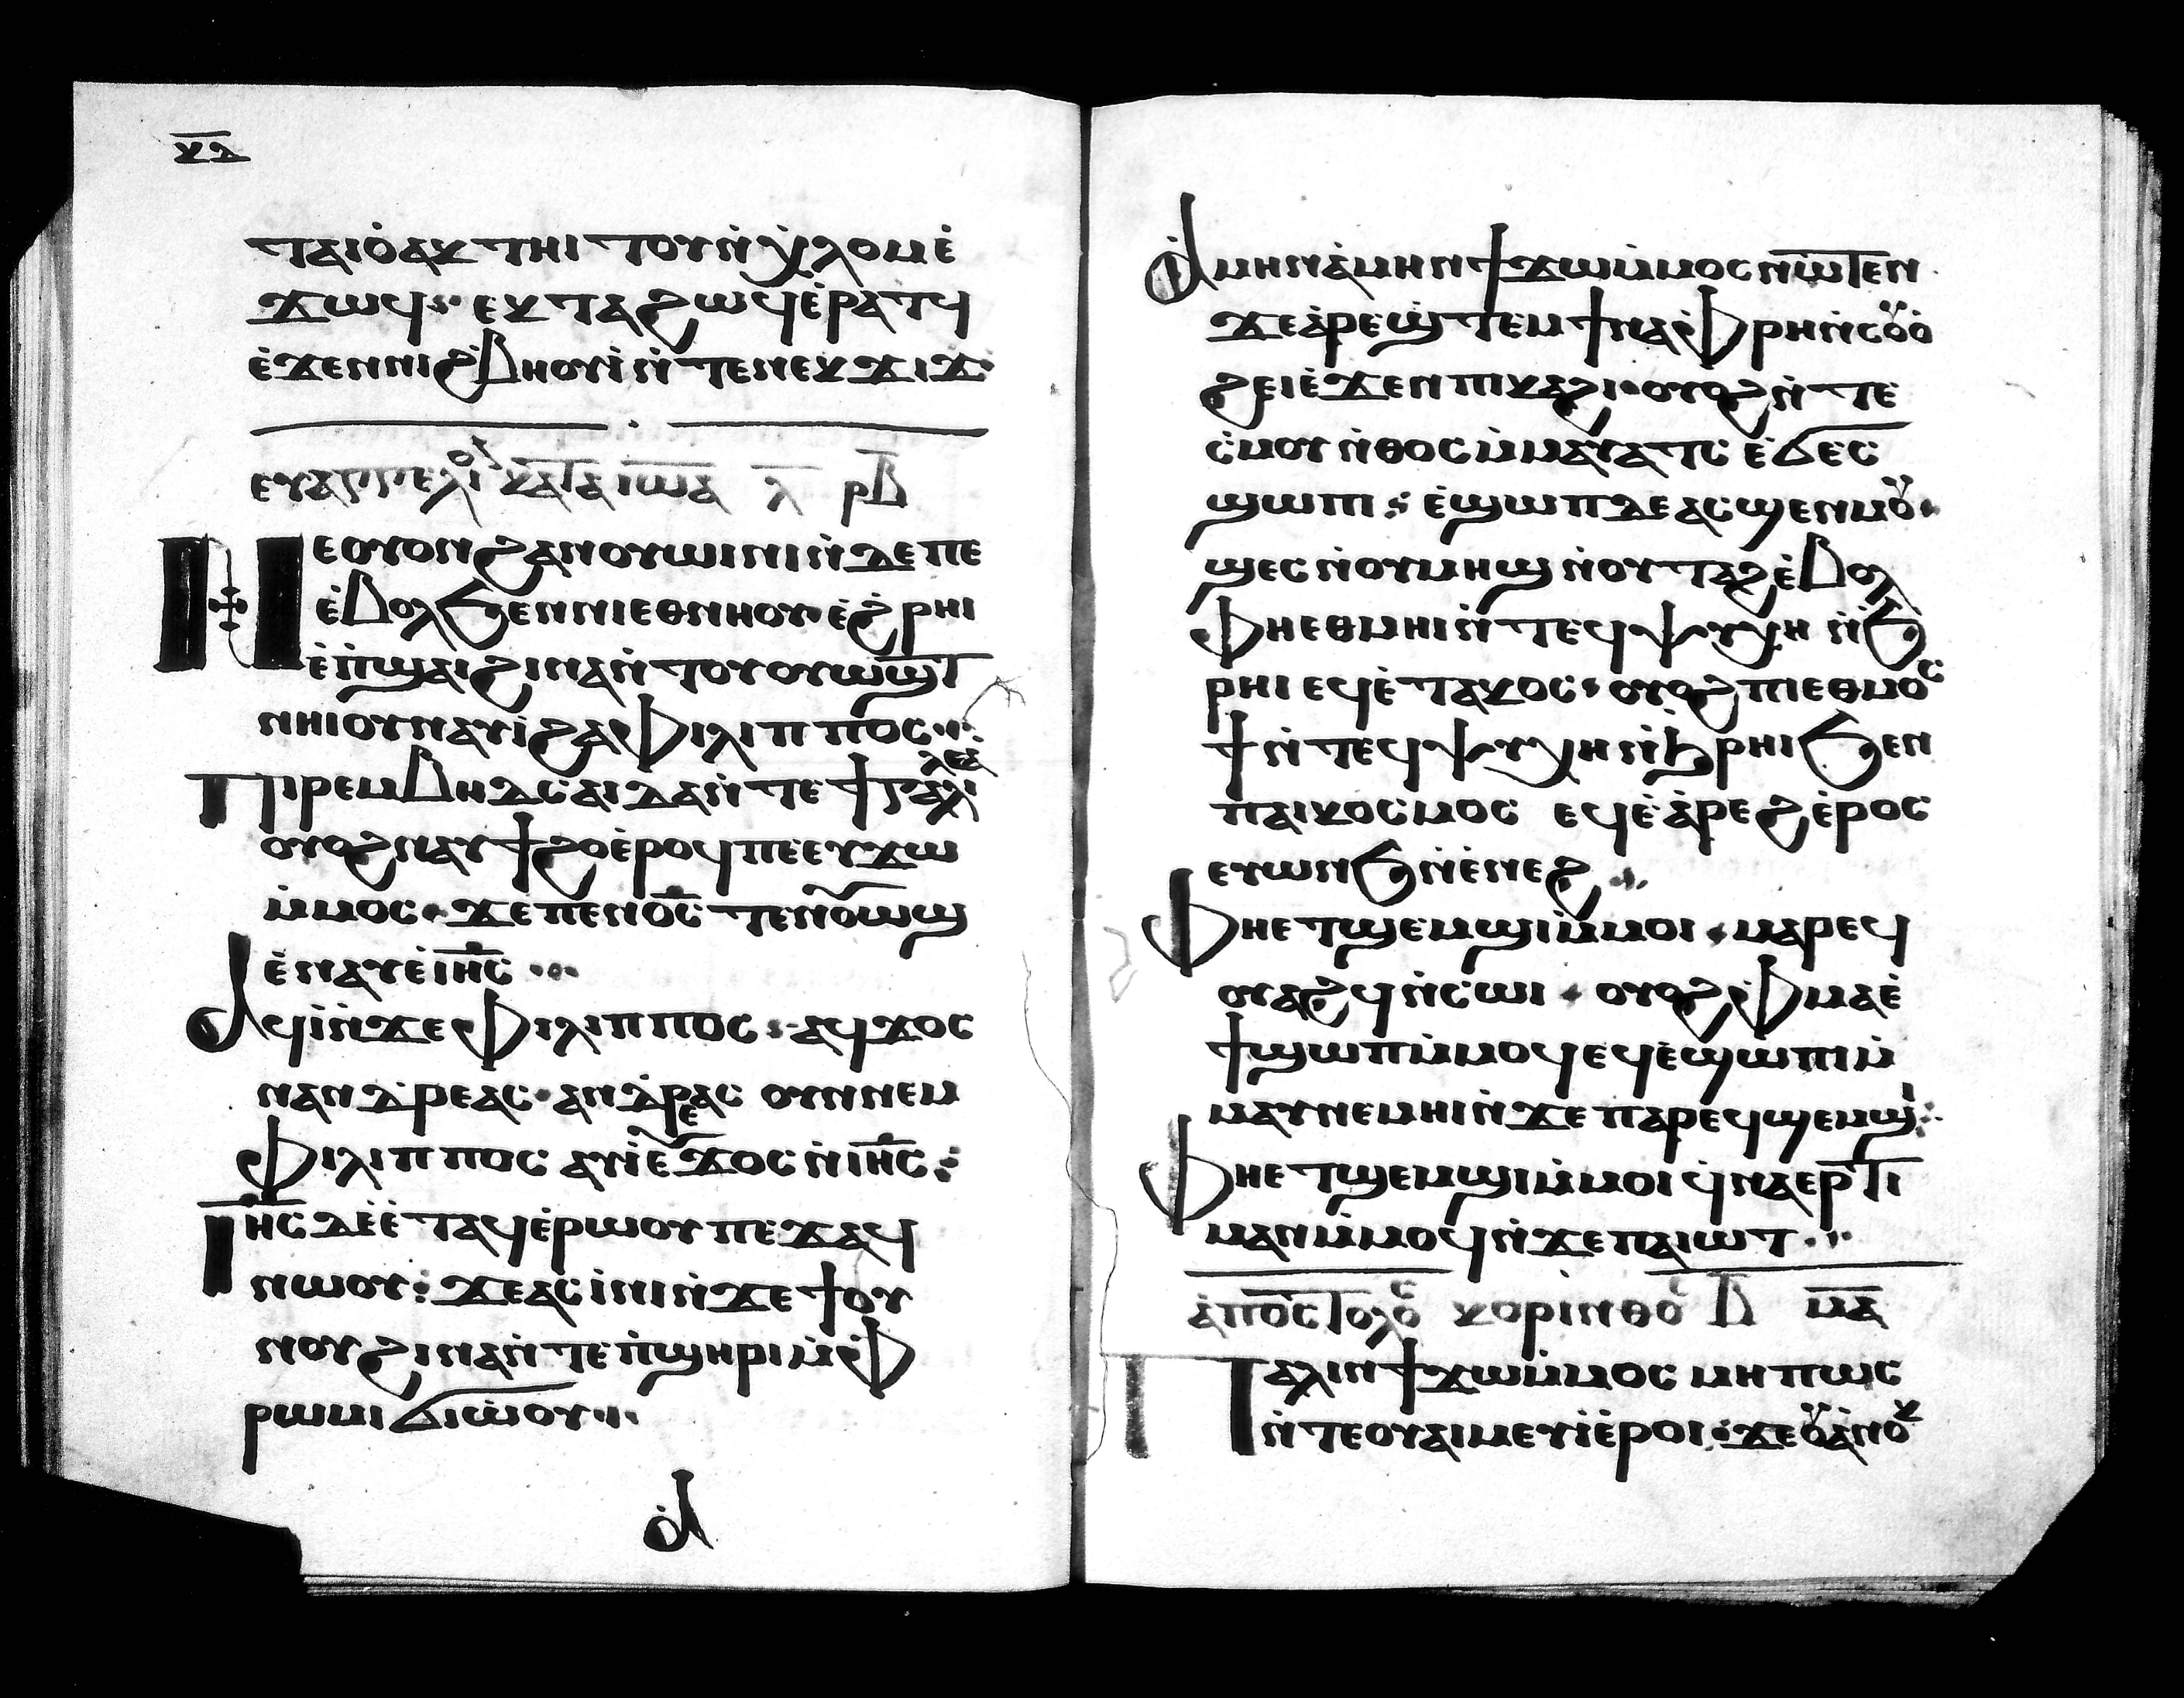 ⲕ̅ⲇ̅
ⲧⲁⲓⲟ̀ⲁⲕ ⲧⲏⲓ ⲧⲟⲩⲛ̀ⲭ̀ⲗⲟⲙ ⲉ̀
ϫⲱϥ ⲉⲕⲧⲁϩⲱϥ ⲉ̀ⲣⲁⲧϥ
ⲉ̀ϫⲉⲛ ⲛⲓϩⲃⲏⲟⲩⲓ̀ ⲛ̀ⲧⲉ ⲛⲉⲕϫⲓϫ
ⲉⲩⲁⲅⲅⲉⲗⲓⲟⲛ ⲕⲁⲧⲁ ⲓⲱ̅ⲁ̅ ⲗ̅ ⲣ̅ⲃ̅
ⲛⲉ ⲟⲩⲟⲛ ϩⲁⲛⲟⲩⲱⲓⲛⲓⲛ ⲇⲉ ⲡⲉ
ⲉ̀ⲃⲟⲗ ϧⲉⲛ ⲛⲓⲉⲑⲛⲏⲟⲩ ⲉ̀ϩ̀ⲣⲏⲓ
ⲉ̀ⲡ̀ϣⲁⲓ ϩⲓⲛⲁ ⲛ̀ⲧⲟⲩⲟⲩⲱϣⲧ
ⲛⲏⲓ ⲟⲩⲛ ⲁⲩⲓ̀ ϩⲁ ⲫⲓⲗⲓⲡⲡⲟⲥ
ⲡⲓⲣⲉⲙⲃⲏⲇⲥⲁⲓⲇⲁ ⲛ̀ⲧⲉ ϯⲅⲁⲗⲓⲗⲉⲁ̀
ⲟⲩⲟϩ ⲛⲁⲩϯϩⲟ ⲉ̀ⲣⲟϥ ⲡⲉ ⲉⲩϫⲱ
ⲙ̀ⲙⲟⲥ ϫⲉ ⲡⲉⲛⲟ̅ⲥ̅ ⲧⲉⲛⲟⲩⲱϣ
ⲉ̀ⲛⲁⲩ ⲉ̀ⲓ̅ⲏ̅ⲥ̅
ⲁϥⲓ̀ ⲛ̀ϫⲉ ⲫⲓⲗⲓⲡⲡⲟⲥ ⲁϥϫⲟⲥ
ⲛⲁⲛⲇⲣⲉⲁⲥ ⲁⲛⲇⲣⲉⲁⲥ ⲟⲩⲛ ⲛⲉⲙ
ⲫⲓⲗⲓⲡⲡⲟⲥ ⲁⲩⲓ̀ ⲉ̀ϫⲟⲥ ⲛ̀ⲓ̅ⲏ̅ⲥ̅
ⲓ̅ⲏ̅ⲥ̅ ⲇⲉ ⲉ̀ⲧⲁϥⲉ̀ⲣⲱⲟⲩ ⲡⲉϫⲁϥ
ⲛⲱⲟⲩ ϫⲉ ⲁⲥⲓ̀ⲛⲓ ⲛ̀ϫⲉ ϯⲟⲩ
ⲛⲟⲩ ϩⲓⲛⲁ ⲛ̀ⲧⲉ ⲡ̀ϣⲏⲣⲓ ⲙ̀ⲫ
ⲣⲱⲙⲓ ϭⲓⲱ̀ⲟⲩ
ⲁ̀
ⲁ̀ⲙⲏⲛ ⲁ̀ⲙⲏⲛ ϯϫⲱ ⲙ̀ⲙⲟⲥ ⲛⲱⲧⲉⲛ
ϫⲉ ⲁ̀ⲣⲉϣ̀ⲧⲉⲙ ϯⲛⲁⲫⲣⲏ ⲛ̀ⲥⲟⲩⲟ̀
ϩⲉⲓ ⲉ̀ϫⲉⲛ ⲡⲓⲕⲁϩⲓ ⲟⲩⲟϩ ⲛ̀ⲧⲉ
ⲥ̀ⲙⲟⲩ ⲛ̀ⲑⲟⲥ ⲙ̀ⲙⲁⲩⲁⲧⲥ ⲉ̀ϭⲉⲥ
ϣⲱⲡⲓ ⲉ̀ϣⲱⲡ ⲇⲉ ⲁⲥϣⲉⲛⲙⲟⲩ
ϣⲉⲥ ⲛ̀ⲟⲩⲙⲏϣ ⲛ̀ⲟⲩⲧⲁϩ ⲉ̀ⲃⲟⲗ
ⲫⲏⲉⲑⲙⲏⲓ ⲛ̀ⲧⲉϥⲯⲩⲭⲏ ⲛ̀ϧ
ⲣⲏⲓ ⲉϥⲉ̀ⲧⲁⲕⲟⲥ ⲟⲩⲟϩ ⲡⲓⲉⲑⲙⲟⲥ
ϯ ⲛ̀ⲧⲉϥⲯⲩⲭⲏ ⲛ̀ϩⲣⲏⲓ ϧⲉⲛ
ⲡⲁⲓⲕⲟⲥⲙⲟⲥ ⲉϥⲉ̀ⲁ̀ⲣⲉϩ ⲉ̀ⲣⲟⲥ
ⲉⲩⲱⲛϧ ⲛ̀ⲉ̀ⲛⲉϩ
ⲫⲏⲉⲧϣⲉⲙϣⲓ ⲙ̀ⲙⲟⲓ ⲙⲁⲣⲉϥ
ⲟⲩⲁϩϥ ⲛ̀ⲥⲱⲓ ⲟⲩⲟϩ ⲫⲙⲁ ⲉ̀
ϯϣⲱⲡ ⲙ̀ⲙⲟϥ ⲉϥⲉ̀ϣⲱⲡⲓ ⲙ̀
ⲙⲁⲩ ⲛⲉⲙⲏⲓ ⲛ̀ϫⲉ ⲡⲁⲣⲉϥϣⲉⲙϣⲓ
ⲫⲏⲉⲧϣⲉⲙϣⲓ ⲙ̀ⲙⲟⲓ ϥ̀ⲛⲁⲉⲣⲧⲓ
ⲙⲁⲛ ⲙ̀ⲙⲟϥ ⲛ̀ϫⲉ ⲡⲁⲓⲱⲧ
ⲁ̀ⲡⲟⲥⲧⲟⲗⲟⲥ ⲕⲟⲣⲓⲛⲑⲟⲥ ⲃ̅ ⲙ̅ⲁ̅
ⲡⲁⲗⲓⲛ ϯϫⲱ ⲙ̀ⲙⲟⲥ ⲙⲏⲡⲱⲥ
ⲛ̀ⲧⲉ ⲟⲩⲁⲓ ⲙⲉⲩⲓ̀ ⲉ̀ⲣⲟⲓ ϫⲉ ⲟⲩⲁ̀ⲛⲟⲕ